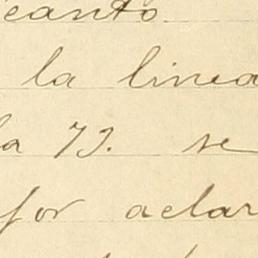 canto
la linea
la 73. se
for aclar